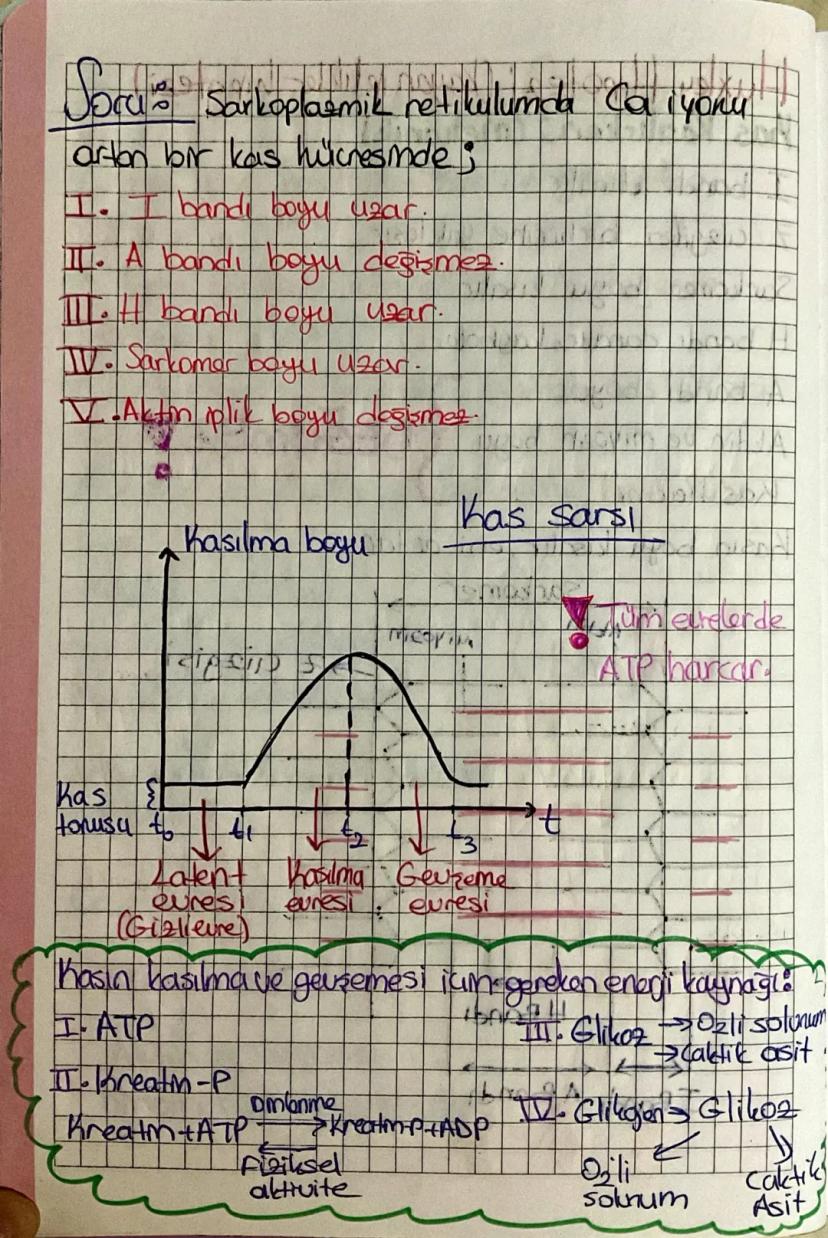 Soru: Sarkoplazmik retikulumda Ca iyonu
artan bir kas hücresinde;
I. I bandı boyu uzar.
II. A bandı boyu değişmez.
III. H bandı boyu uzar.
IV. Sarkomer boyu uzar.
V. Aktin iplik boyu değişmez.
!
Kas sarsı
Kasılma boyu
! Tüm evrelerde
ATP harcar.
Kas
tonusu
t₀ t₁ t₂ t₃ t
Latent
evresi
(Gizli evre)
Kasılma
evresi
Gevşeme
evresi
Kasın kasılma ve gevşemesi için gereken enerji kaynağı:
I. ATP
II. Kreatin-P
Kreatin+ATP → Kreatin-P+ADP
Dinlenme
Fiziksel
aktivite
III. Glikoz → O₂li solunum
→ Laktik asit
IV. Glikojen → Glikoz
O₂'li
solunum
Laktik
Asit